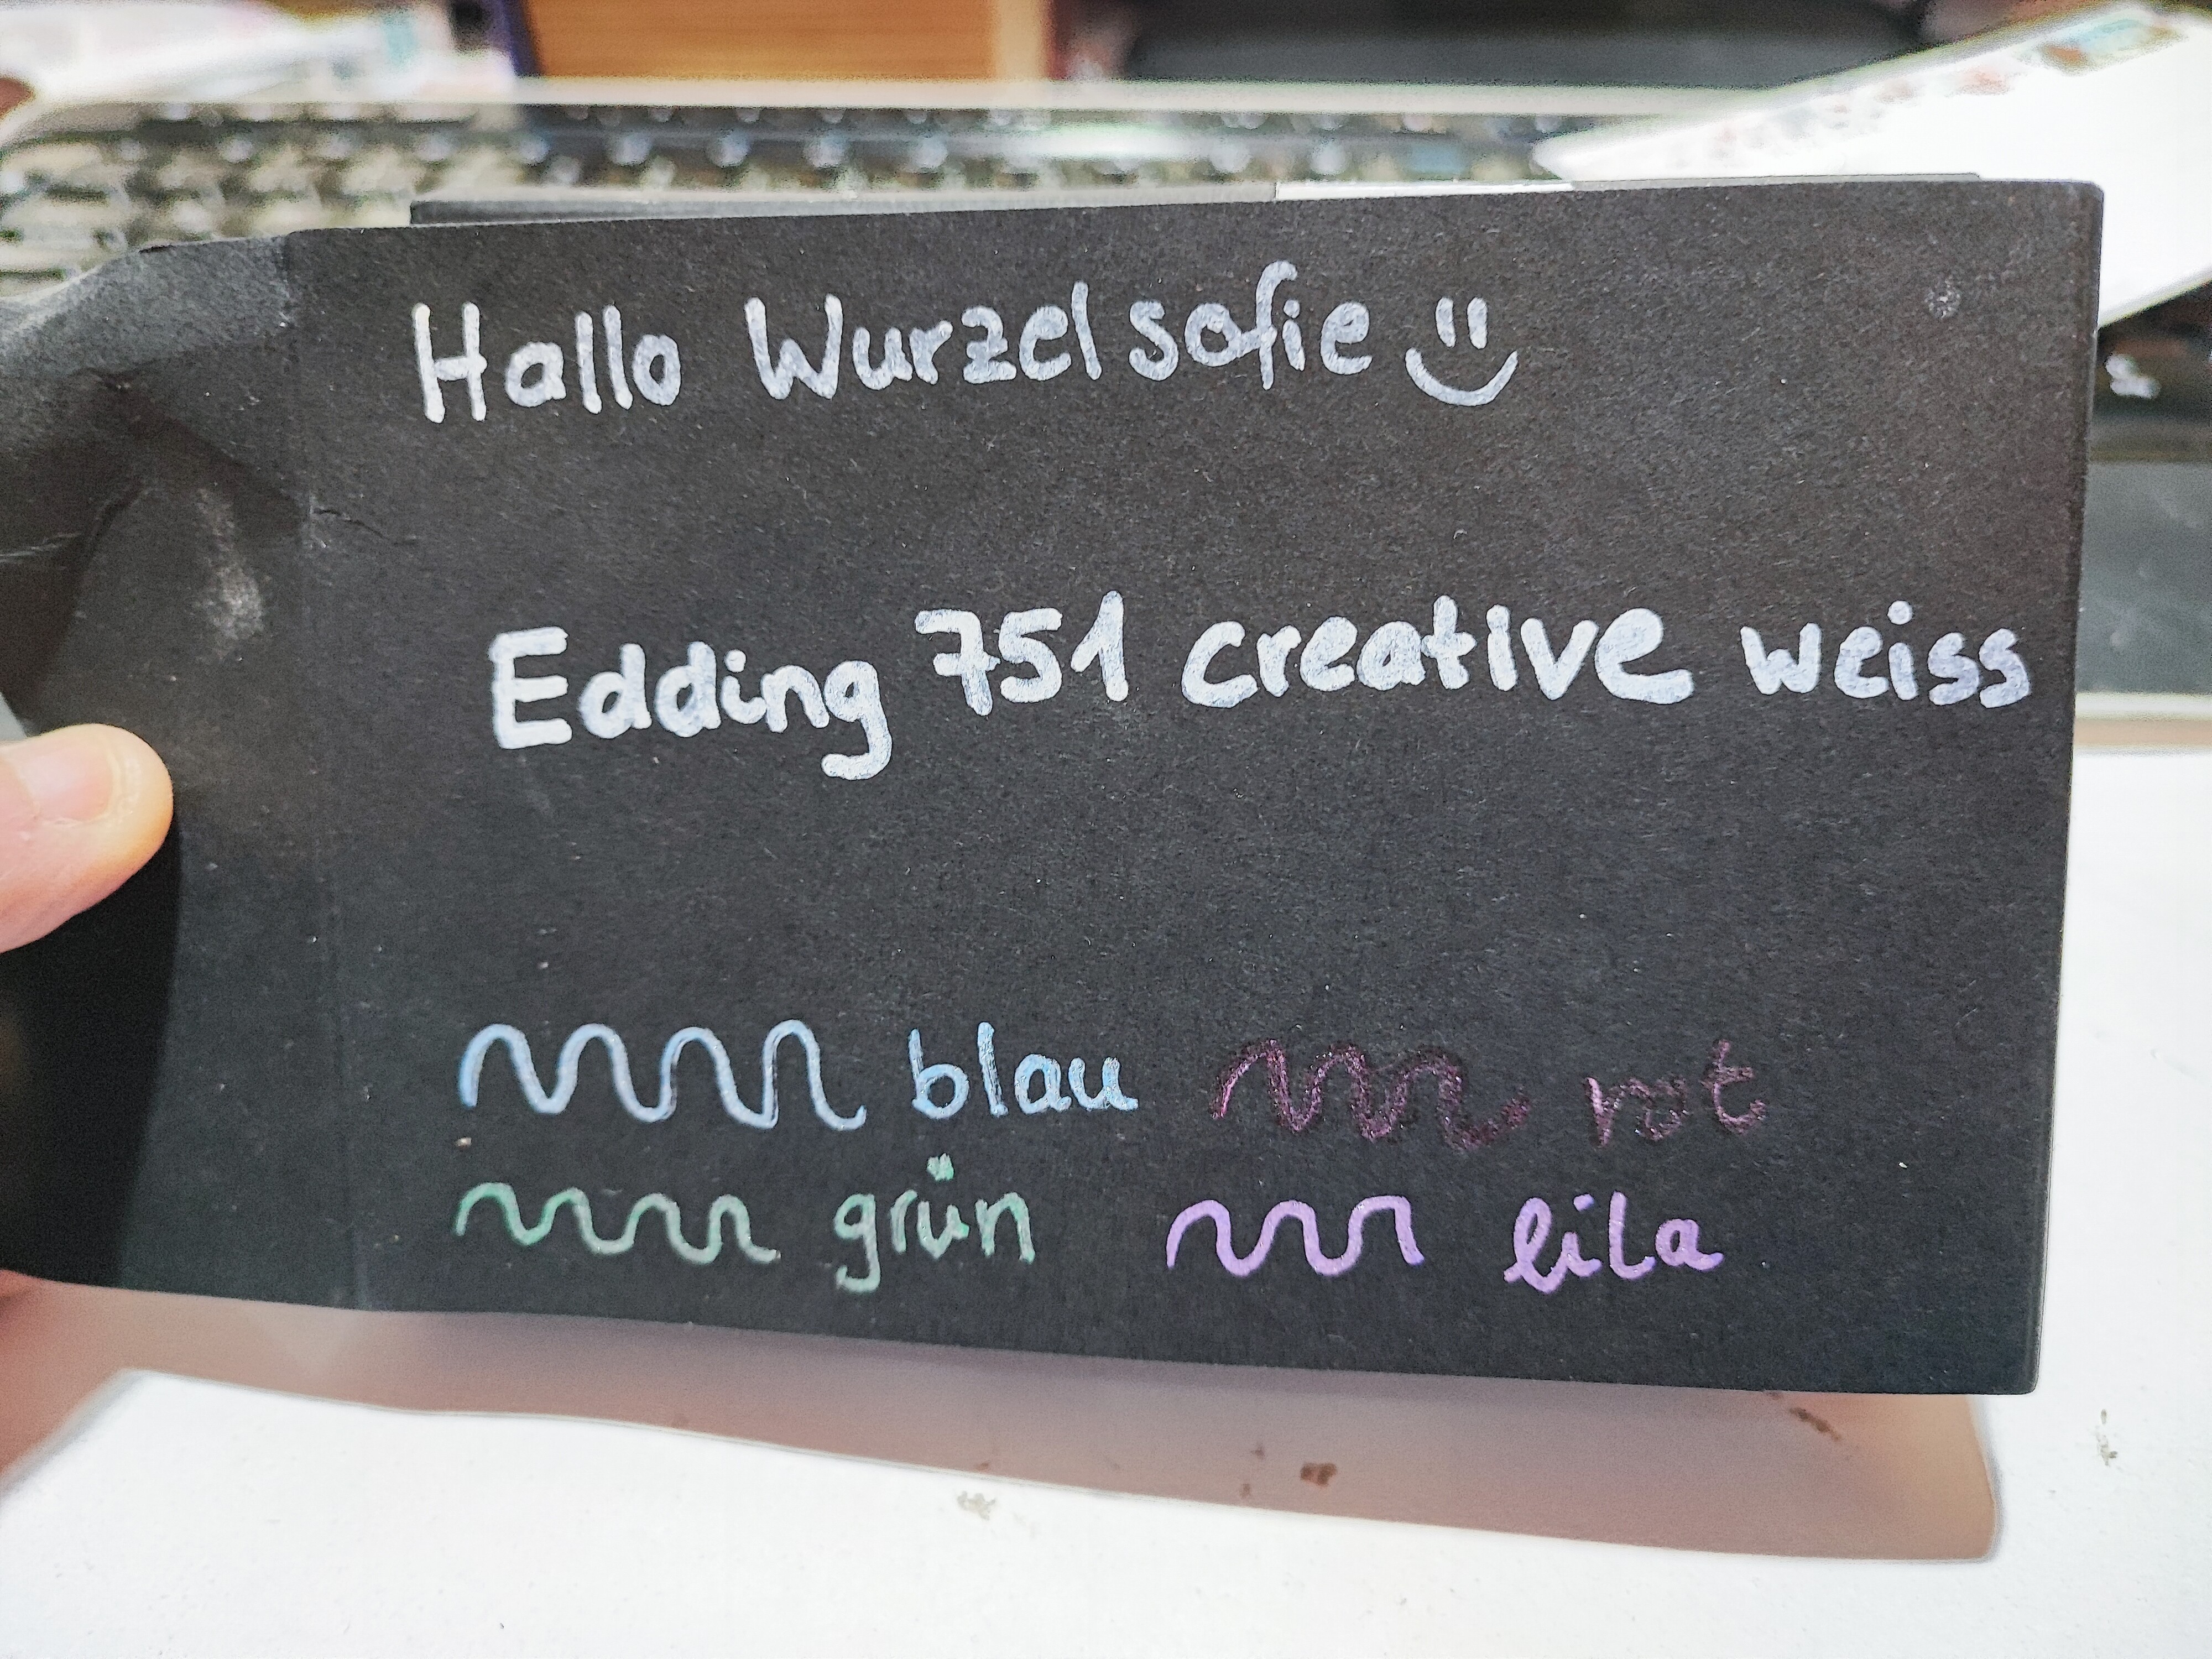 Hallo Wurzelsofie
Edding 751 creative weiss
blau rot
grün lila